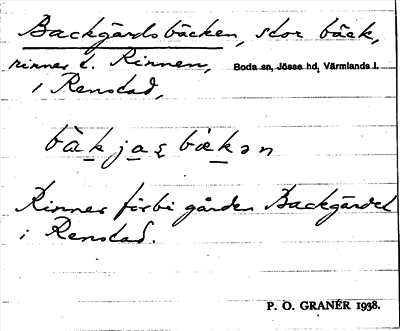 Backgårdsbäcken, stor bäck,
rinner t. Rinnen, Boda sn, Jösse hd, Värmlands l.
i Renstad,
bàkjaʂ bækən
Rinner förbi gården Backgärdet
i Renstad.
P. O. GRANÉR 1938.